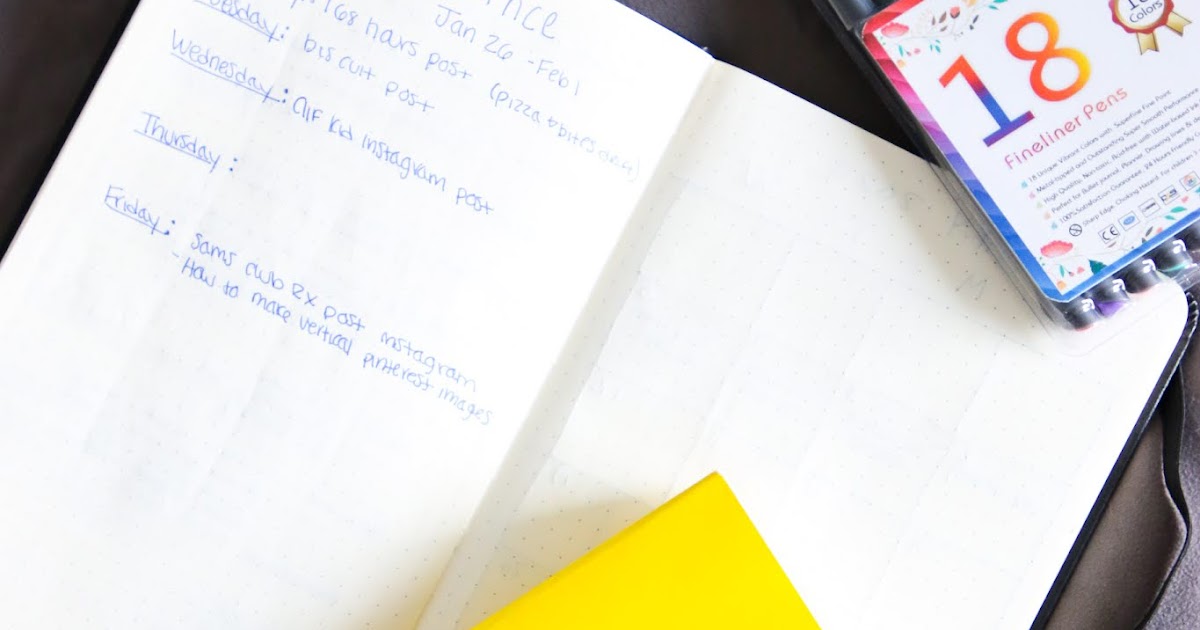 Jan 26 - Feb 1
Tuesday: 168 hours post (pizza & bites only)
biscuit post
Wednesday: AIF Kid Instagram post
Thursday:
Friday: Sams club RX post instagram
- How to make vertical pinterest images
18
Colors
18
Fineliner Pens
18 Unique Vibrant Colors with Superfine Fine Point
Metal-tipped and Outstanding Super Smooth Performance
High Quality, Non-toxic, Acid-free with Water-based Ink
Perfect for Bullet Journal, Planner, Drawing lines &
100% Satisfaction Guarantee, 24 Hours Friendly
Sharp Edge. Choking Hazard. For children
CE